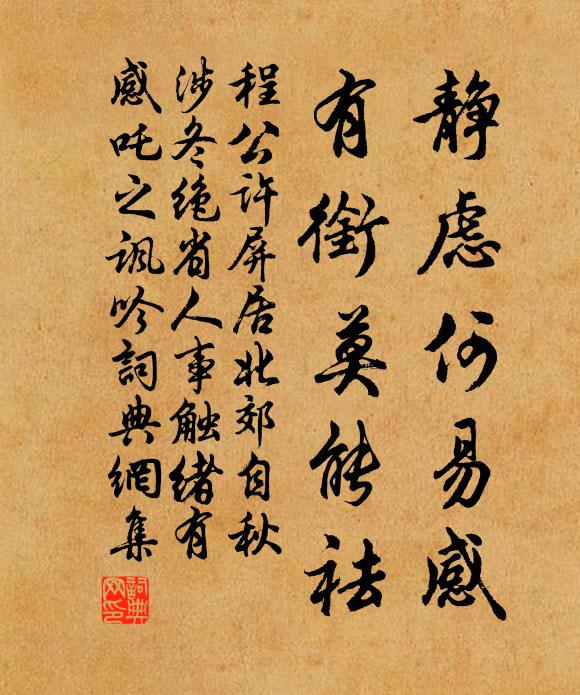 静虑何易感
有衔莫能祛
程公许屏居北郊自秋
涉冬绝省人事触绪有
感吒之讽吟詞典網集
詞典网印